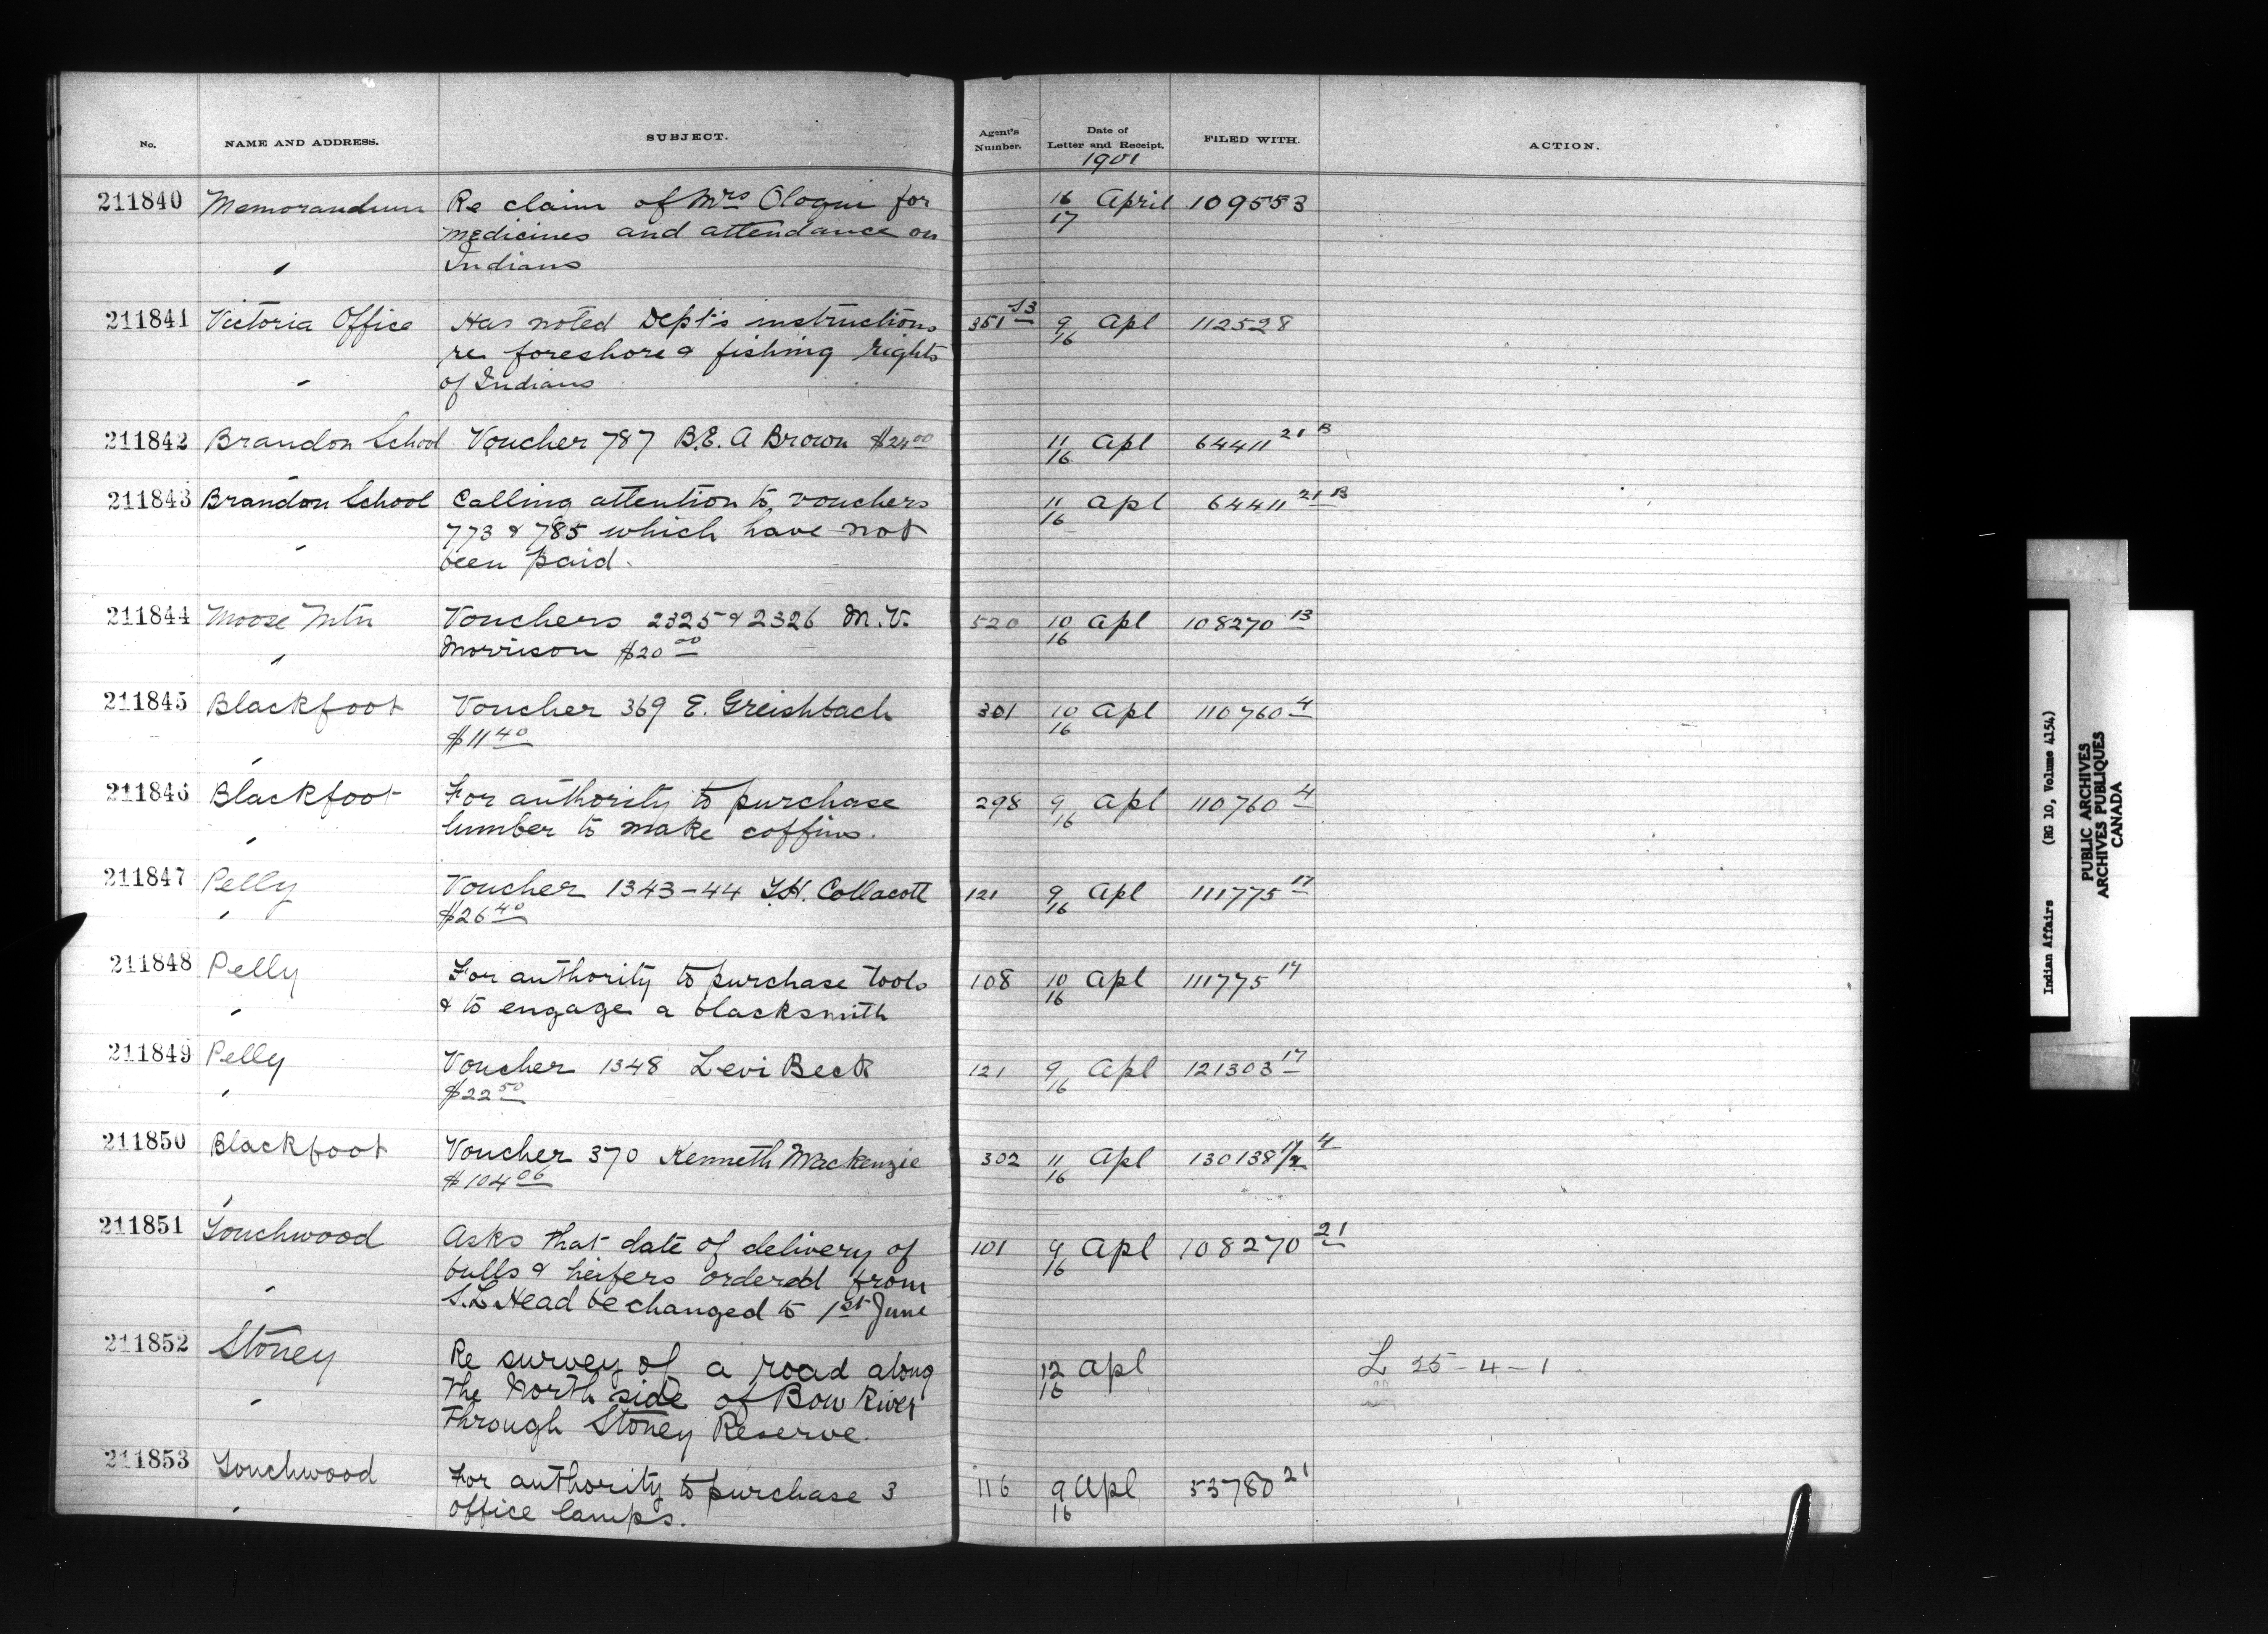 No. NAME AND ADDRESS. SUBJECT. Agent's Number. Date of Letter and Receipt. FILED WITH. ACTION.
1901
211840 Memorandum Re claim of Mrs Ologui for 16/17 April 109553
medicines and attendance on
" Indians
211841 Victoria Office Has noted Dept's instructions 351 53 9/16 Apl 112528
re foreshore & fishing rights
" of Indians
211842 Brandon School Voucher 787 B.E. A Brown $24.00 11/16 Apl 64411 21 B
"
211843 Brandon School Calling attention to vouchers 11/16 Apl 64411 21 B
773 & 785 which have not
" been paid.
211844 Moose Mtn Vouchers 2325 & 2326 M.V. 520 10/16 Apl 108270 13
" Morrison $20 00
211845 Blackfoot Voucher 369 E. Greishbach 301 10/16 Apl 110760 4
" $11 40
211846 Blackfoot For authority to purchase 298 9/16 Apl 110760 4
" lumber to make coffins.
211847 Pelly Voucher 1343-44 T.H. Collacott 121 9/16 Apl 111775 17
" $26 40
211848 Pelly For authority to purchase tools 108 10/16 Apl 111775 17
" & to engage a blacksmith
211849 Pelly Voucher 1348 Levi Beck 121 9/16 Apl 121303 17
" $22 50
211850 Blackfoot Voucher 370 Kenneth Mackenzie 302 11/16 Apl 130138 4
" $104 06
211851 Touchwood Asks that date of delivery of 101 9/16 Apl 108270 21
" bulls & heifers ordered from
S.L Head be changed to 1st June
211852 Stoney Re survey of a road along 12/16 Apl L 25-4-1
the North side of Bow River
" through Stoney Reserve.
211853 Touchwood For authority to purchase 3 116 9/16 Apl 53780 21
" office lamps.
Indian Affairs (RG 10, Volume 4154)
PUBLIC ARCHIVES
ARCHIVES PUBLIQUES
CANADA